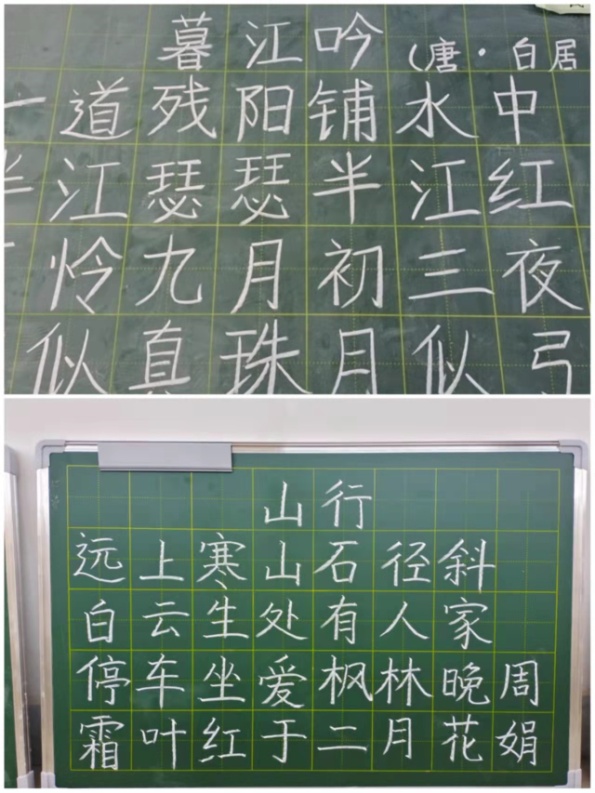 暮江吟 (唐·白居
一道残阳铺水中
半江瑟瑟半江红
怜九月初三夜
似真珠月似弓
山行
远上寒山石径斜
白云生处有人家
停车坐爱枫林晚周
霜叶红于二月花娟